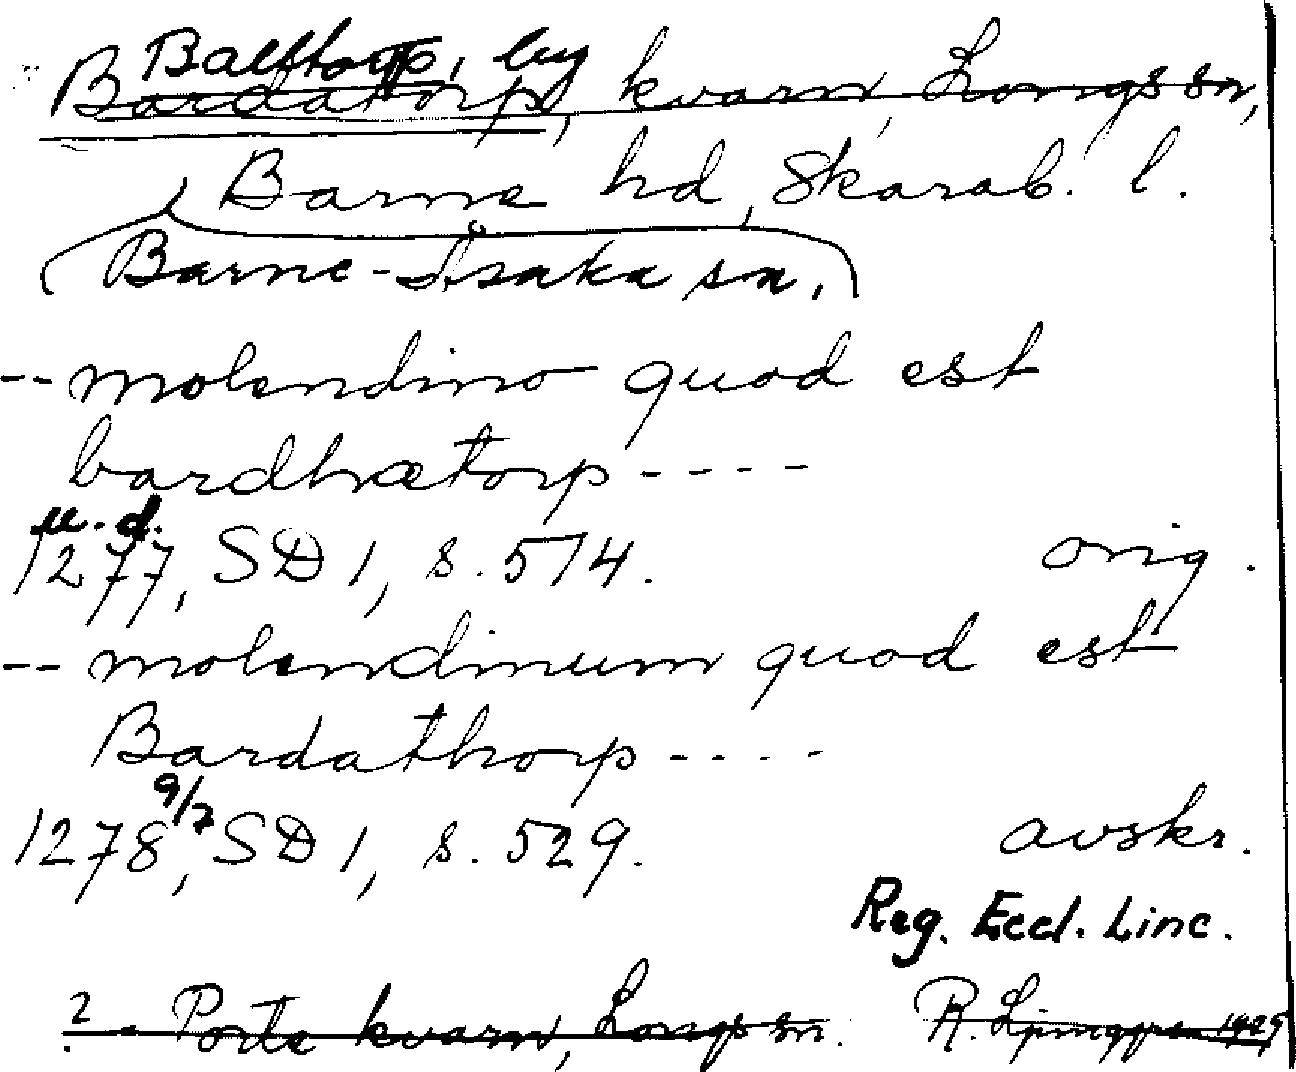 Balltorp, by
Bardatorp, kvarn, Longs sn,
Barne hd, Skarab. l.
Barne-Åsaka sn.
-- molendino quod est
bardhætorp ----
u. d.
1277, SD 1, s. 514. orig.
-- molendinum quod est
Bardathorp ----
9/7
1278, SD 1, s. 529. avskr.
Reg. Eccl. Linc.
? - Porte kvarn, Longs sn. R. Ljunggren 1925